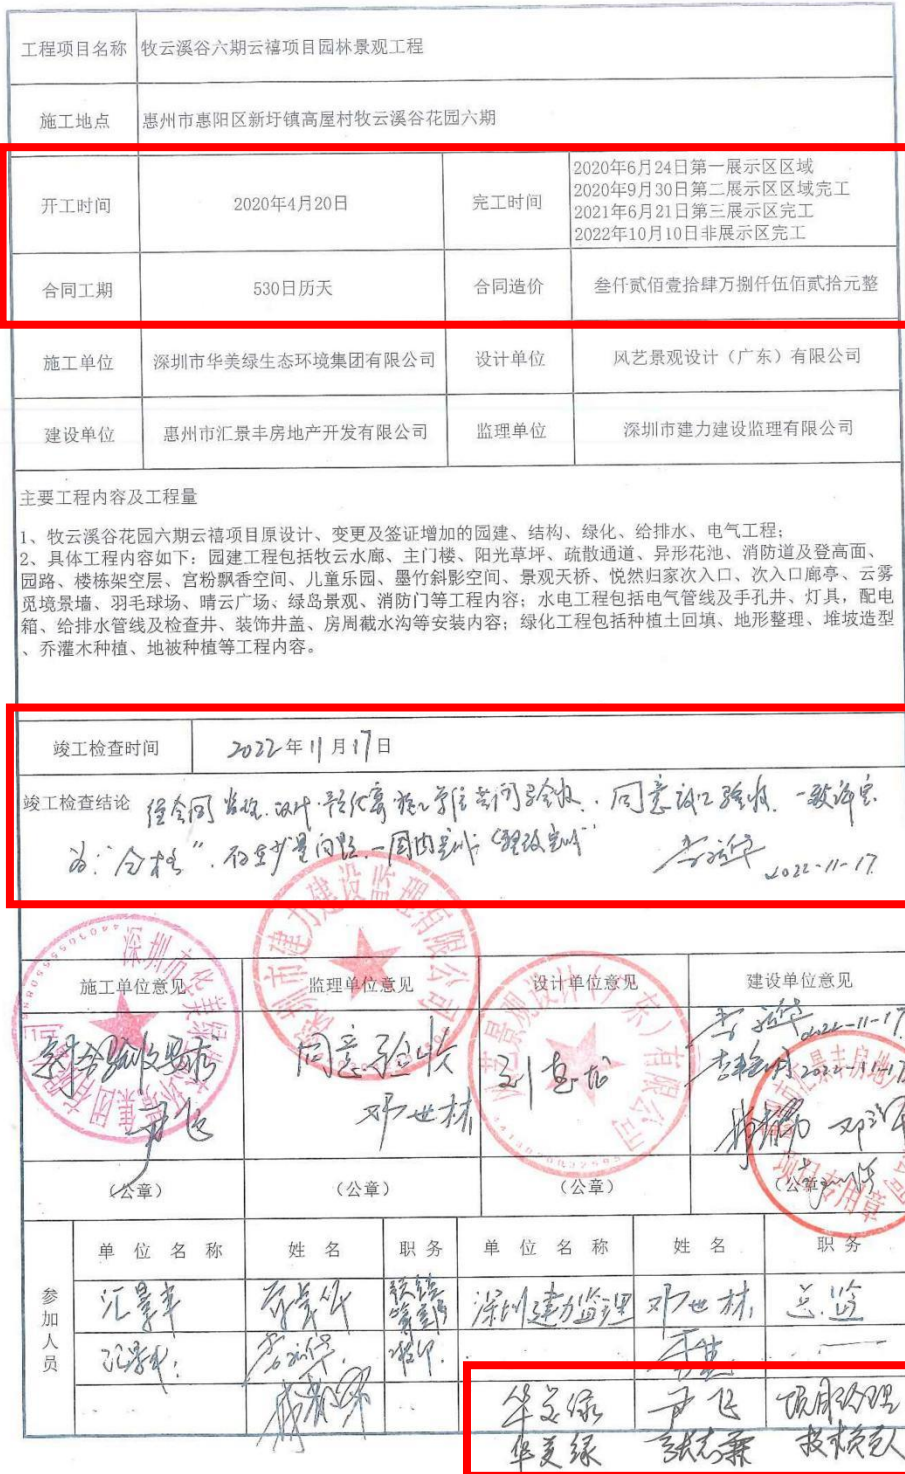 工程项目名称 牧云溪谷六期云禧项目园林景观工程
施工地点 惠州市惠阳区新圩镇高屋村牧云溪谷花园六期
开工时间 2020年4月20日 完工时间 2020年6月24日第一展示区区域
2020年9月30日第二展示区区域完工
2021年6月21日第三展示区完工
2022年10月10日非展示区完工
合同工期 530日历天 合同造价 叁仟贰佰壹拾肆万捌仟伍佰贰拾元整
施工单位 深圳市华美绿生态环境集团有限公司 设计单位 风艺景观设计（广东）有限公司
建设单位 惠州市汇景丰房地产开发有限公司 监理单位 深圳市建力建设监理有限公司
主要工程内容及工程量
1、牧云溪谷花园六期云禧项目原设计、变更及签证增加的园建、结构、绿化、给排水、电气工程；
2、具体工程内容如下：园建工程包括牧云水廊、主门楼、阳光草坪、疏散通道、异形花池、消防道及登高面、
园路、楼栋架空层、宫粉飘香空间、儿童乐园、墨竹斜影空间、景观天桥、悦然归家次入口、次入口廊亭、云雾
觅境景墙、羽毛球场、晴云广场、绿岛景观、消防门等工程内容；水电工程包括电气管线及手孔井、灯具，配电
箱、给排水管线及检查井、装饰井盖、房周截水沟等安装内容；绿化工程包括种植土回填、地形整理、堆坡造型
、乔灌木种植、地被种植等工程内容。
竣工检查时间 2022年11月17日
竣工检查结论 经会同监理、设计、施工单位共同验收，同意竣工验收，一致评定
为：“合格”，存在少量问题，一周内完成
2022-11-17
施工单位意见 监理单位意见 设计单位意见 建设单位意见
符合验收要求 同意验收 2022-11-17
尹飞 邓世林 2022-11-17
（公章） （公章） （公章） （公章）
参加人员
单位名称 姓名 职务 单位名称 姓名 职务
汇景丰 深圳建力监理 邓世林 总监
汇景丰
华美绿 尹飞 项目经理
华美绿 张志兼 技术负责人
深圳市华美绿生态环境集团有限公司
深圳市建力建设监理有限公司
风艺景观设计（广东）有限公司
项目专用章